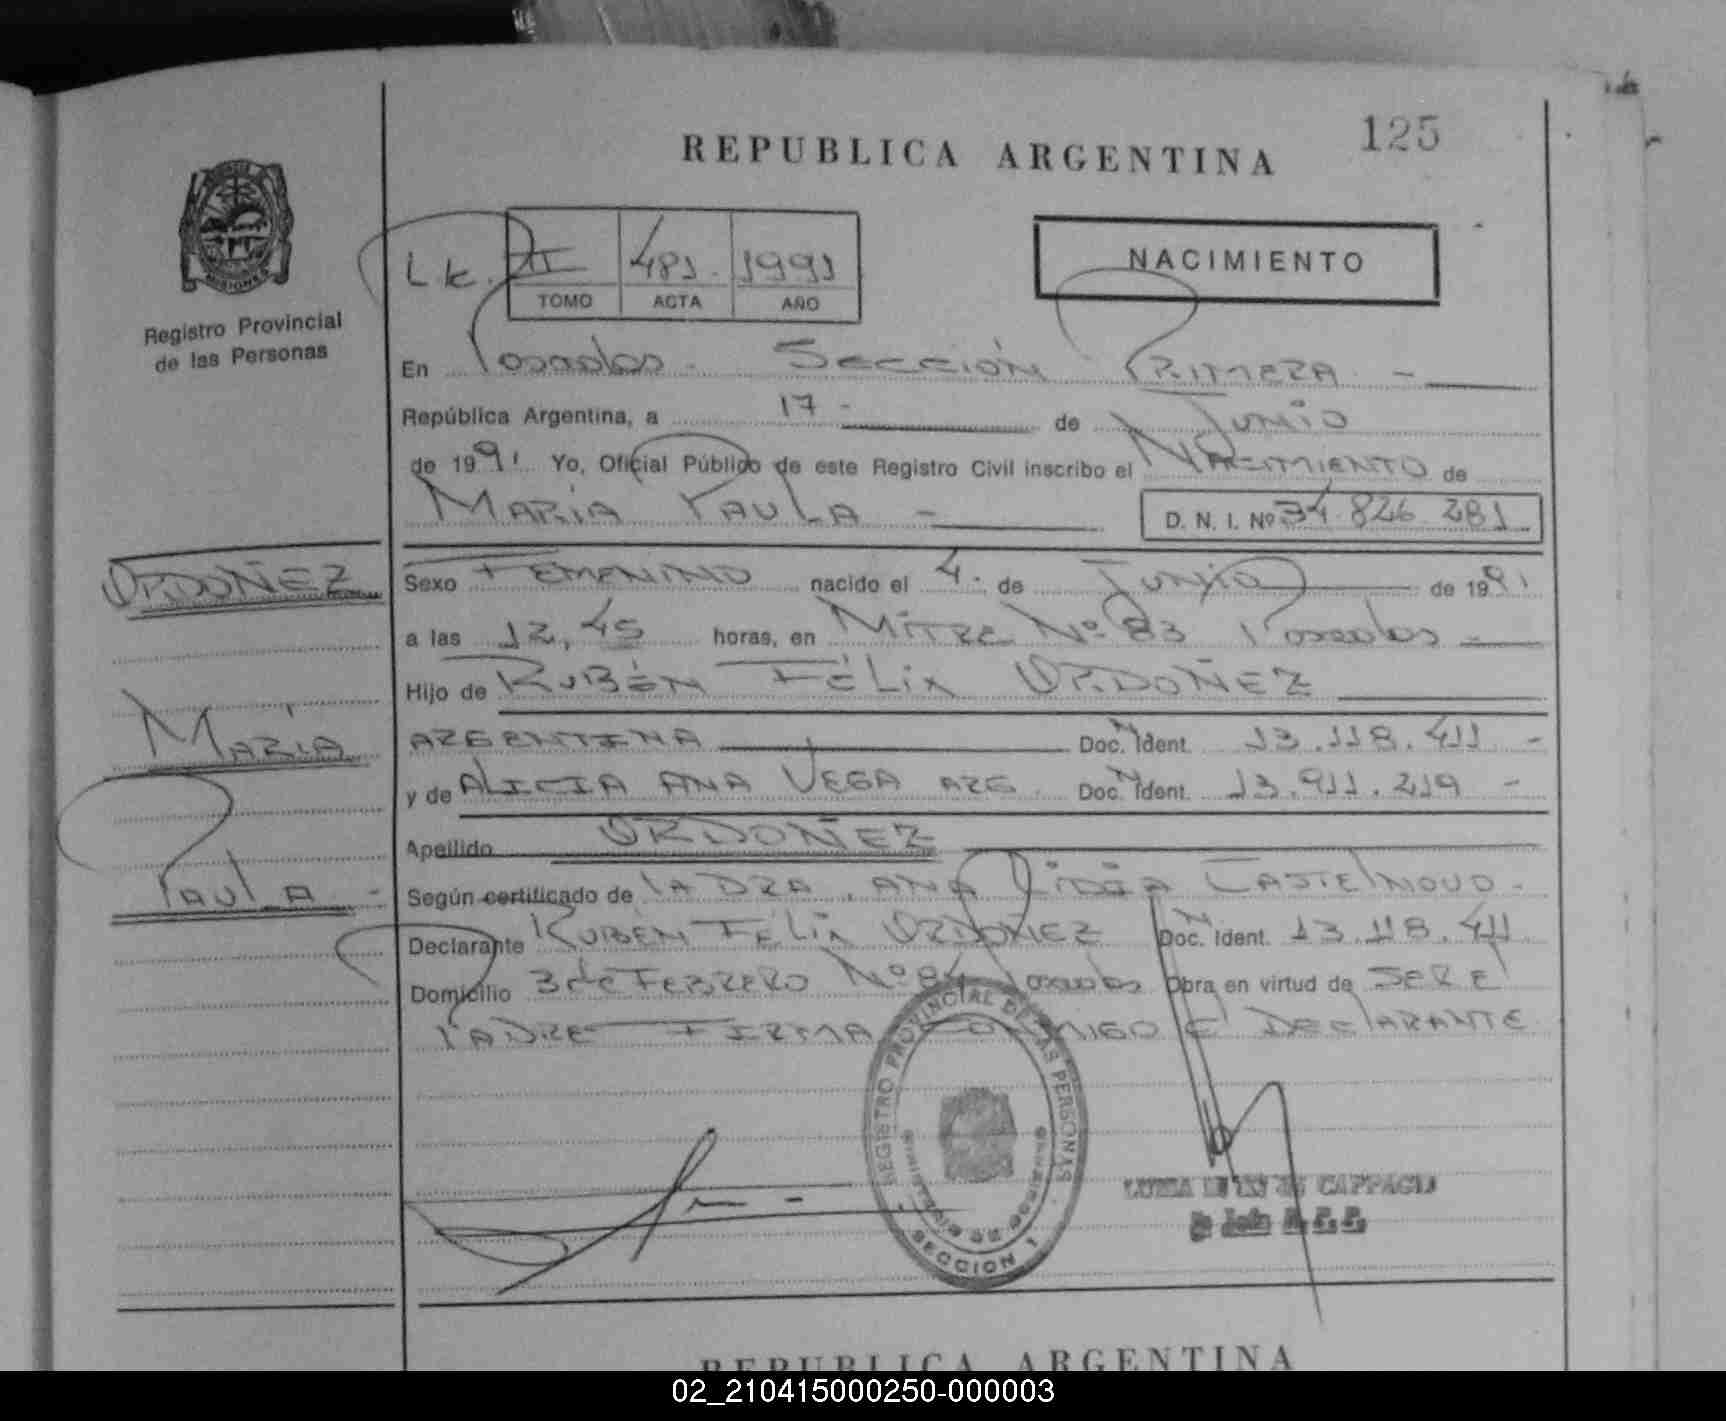 REPUBLICA ARGENTINA
125
MISIONES
Registro Provincial
de las Personas
NACIMIENTO
II 481. 1991
TOMO ACTA AÑO
En Posadas. Sección PRIMERA -
República Argentina, a 17 - de Junio
de 1991 Yo, Oficial Público de este Registro Civil inscribo el NACIMIENTO de
MARÍA PAULA -
D. N. I. Nº 34.826.281
ORDOÑEZ
MARÍA
PAULA -
Sexo FEMENINO nacido el 4. de Junio de 1991
a las 12,45 horas, en MITRE Nº 83 Posadas -
Hijo de RUBÉN FÉLIX ORDOÑEZ
ARGENTINA Doc. N Ident. 13.118.411 -
y de ALICIA ANA VEGA ARG. Doc. N Ident. 13.911.219 -
Apellido ORDOÑEZ
Según certificado de LA DRA. ANA LIDIA CASTELNOVO -
Declarante RUBÉN FÉLIX ORDOÑEZ Doc. N Ident. 13.118.411
Domicilio 3 de FEBRERO Nº 84 Posadas Obra en virtud de SER El
PADRE FIRMA CONMIGO El DECLARANTE
REGISTRO PROVINCIAL DE LAS PERSONAS
MINISTERIO DE GOBIERNO
SECCION 1
REPUBLICA ARGENTINA
02_210415000250-000003